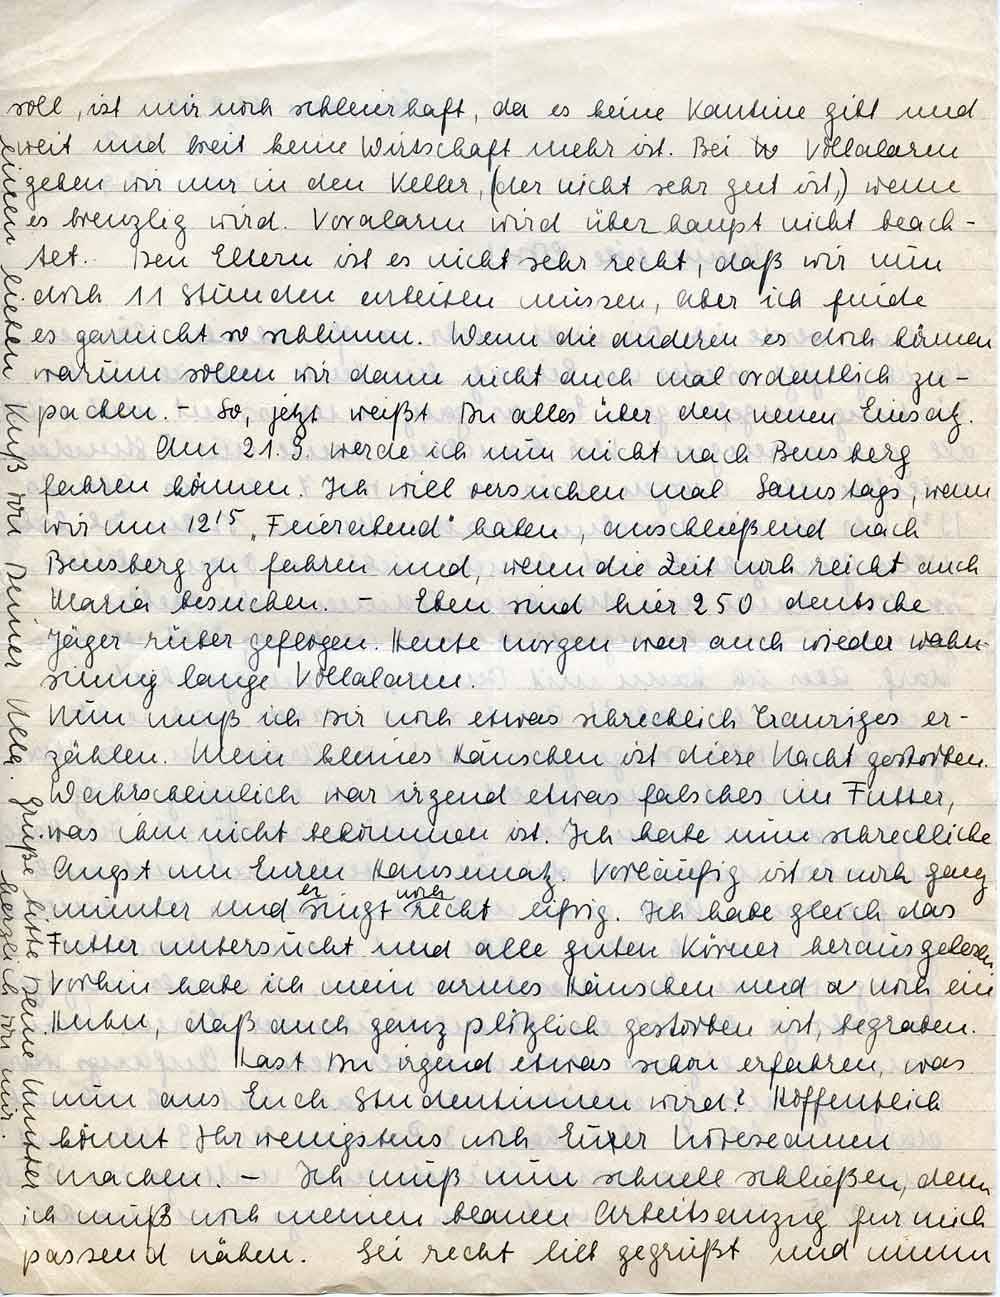 soll, ist mir noch schleierhaft, da es keine Kantine gibt und
weit und breit keine Wirtschaft mehr ist. Bei Vollalarm
gehen wir nur in den Keller, (der nicht sehr gut ist,) wenn
es brenzlig wird. Voralarm wird überhaupt nicht beach-
tet. Den Eltern ist es nicht sehr recht, daß wir nun
doch 11 Stunden arbeiten müssen, aber ich finde
es garnicht so schlimm. Wenn die anderen es doch können
warum sollen wir dann nicht auch mal ordentlich zu-
packen. - So, jetzt weißt Du alles über den neuen Einsatz.
Am 21.9. werde ich nun nicht nach Bensberg
fahren können. Ich will versuchen mal Samstags, wenn
wir um 12¹⁵ „Feierabend" haben, anschließend nach
Bensberg zu fahren und, wenn die Zeit noch reicht auch
Maria besuchen. - Eben sind hier 250 deutsche
Jäger rüber geflogen. Heute morgen war auch wieder wahn-
sinnig lange Vollalarm.
Nun muß ich Dir noch etwas schrecklich Trauriges er-
zählen. Mein kleines Hänschen ist diese Nacht gestorben.
Wahrscheinlich war irgend etwas falsches im Futter,
was ihm nicht bekommen ist. Ich habe nun schreckliche
Angst um Euren Hansematz. Vorläufig ist er noch ganz
munter und er singt noch recht eifrig. Ich habe gleich das
Futter untersucht und alle guten Körner herausgelesen.
Vorhin habe ich mein armes Hänschen und noch ein
Huhn, daß auch ganz plötzlich gestorben ist, begraben.
Hast Du irgend etwas schon erfahren, was
nun aus Euch Studentinnen wird? Hoffentlich
könnt Ihr wenigstens noch Euer Vorexamen
machen. - Ich muß nun schnell schließen, denn
ich muß noch meinen blauen Arbeitsanzug für mich
passend nähen. Sei recht lieb gegrüßt und nimm
einen lieben Kuß von Deiner
Grüße bitte Deine Mutter
herzlich von mir.